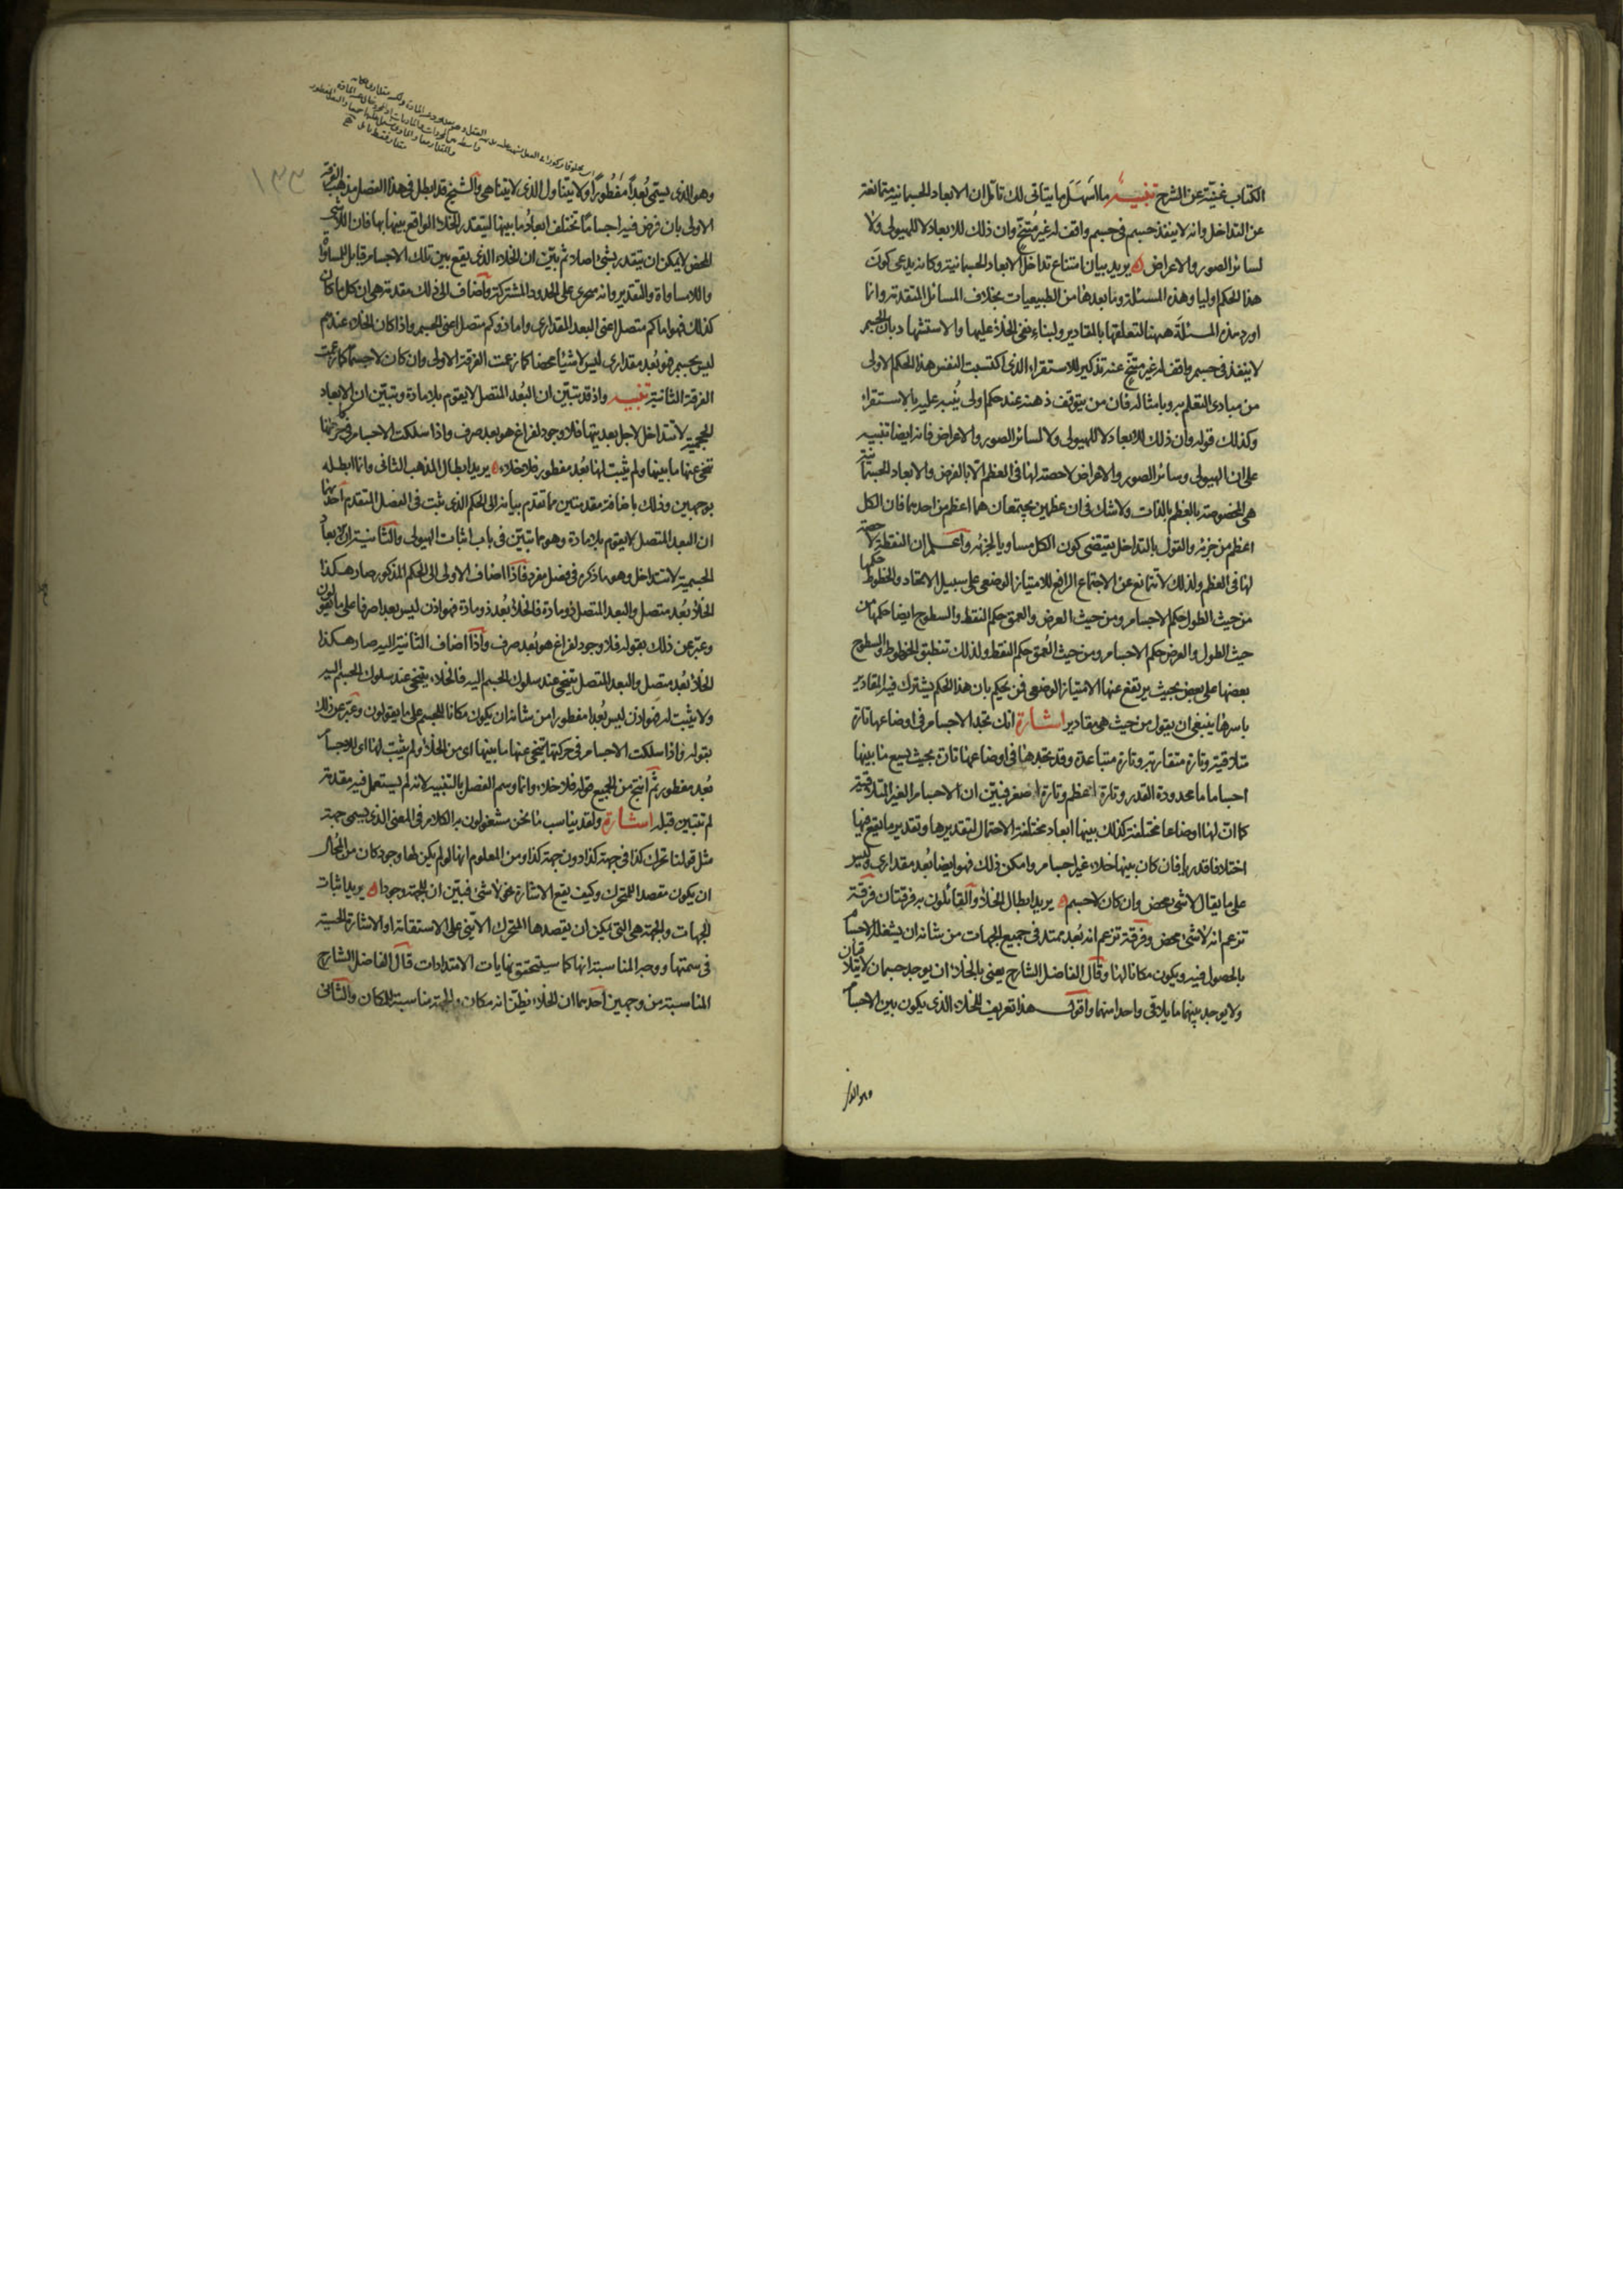 الكتاب غنيّة عن الشرح تنبيه ما اسهل ما يتاتى لك تامّل ان الابعاد الجسمانية متمانعة
عن التداخل وانه لا ينفذ جسم فى جسم واقف له غير متنحّ وان ذلك للابعاد لا للهيولى ولا
لسائر الصور والاعراض يريد بيان امتناع تداخل الابعاد الجسمانية وكانه يدعى كون
هذا الحكم اوليا وهذه المسئلة وما بعدها من الطبيعيات بخلاف المسائل المتقدمة وانما
اورد هذه المسئلة ههنا لتعلقها بالمقادير ولبناء نفى الخلاء عليها والاستشهاد بان الجسم
لا ينفذ فى جسم واقف له غير متنحّ عنه تذكير للاستقراء الذى اكتسبت النفس هذا الحكم الاولى
من مبادى التعلم به وبامثاله فان من يتوقف ذهنه عند حكم اولى ينبه عليه بالاستقراء
وكذلك قوله وان ذلك للابعاد لا للهيولى ولا لسائر الصور والاعراض فانه ايضا تنبيه
على ان الهيولى وسائر الصور والاعراض لا حصة لها فى العظم الا بالعرض والابعاد الجسمانية
هى المخصوصة بالعظم بالذات ولا شك فى ان عظمين يجتمعان هما اعظم من احدهما فان الكل
اعظم من جزئه والقول بالتداخل يقتضى كون الكل مساويا لجزئه واعلم ان النقطة لا حصة
لها فى العظم ولذلك لا تتمانع عن الاجتماع الرافع للامتياز الوضعى على سبيل الاتحاد والخطوط حكمها
من حيث الطول حكم الاجسام ومن حيث العرض والعمق حكم النقط والسطوح ايضا حكمها من
حيث الطول والعرض حكم الاجسام ومن حيث العمق حكم النقط ولذلك تنطبق الخطوط والسطوح
بعضها على بعض بحيث يرتفع عنها الامتياز الوضعى فمن يحكم بان هذا الحكم يشترك فيه المقادير
باسرها ينبغى ان يقول من حيث هى مقادير اشارة انك تجد الاجسام فى اوضاعها تارة
متلاقية وتارة متقاربة وتارة متباعدة وقد تجدها فى اوضاعها تارة بحيث يسع ما بينها
اجساما ما محدودة القدر وتارة اعظم وتارة اصغر فبيّن ان الاجسام الغير المتلاقية
كما ان لها اوضاعا مختلفة كذلك بينها ابعاد مختلفة الاحتمال لتقديرها وتقدير ما يقع فيها
اختلافا قدريا فان كان بينها خلاء غير اجسام وامكن ذلك فهو ايضا بعد مقدارى وليس
على ما يقال لا شئ محض وان كان لا جسم يريد ابطال الخلاء والقائلون به فرقتان فرقة
تزعم انه لا شئ محض وفرقة تزعم انه بعد ممتد فى جميع الجهات من شانه ان يشغله الاجسام
بالحصول فيه ويكون مكانا لها وقال الفاضل الشارح يعنى بالخلاء ان يوجد جسمان لا يتلاقيان
ولا يوجد بينهما ما يلاقى واحدا منهما واقول هذا تعريف للخلاء الذى يكون بين الاجسام
وهو الذى
١٣٣
وهو الذى يسمى بُعدًا مفطورًا ولا يتناول الذى لا يتناهى والشيخ قد ابطل فى هذا الفصل مذهب الفرقة
الاولى بان فرض فيه اجساما تختلف ابعاد ما بينها ليتقدر الخلاء الواقع بينها بها فان اللاشئ
المحض لا يمكن ان يتقدر بشئ اصلا ثم بيّن ان الخلاء الذى يقع بين تلك الاجسام قابل للمساواة
واللامساواة والتقدير وانه محوى على الحدود المشتركة واضاف الى ذلك مقدمة هى ان كل ما كان
كذلك فهو اما كم متصل اعنى البعد المقدارى واما ذو كم متصل اعنى الجسم واذا كان الخلاء عندهم
ليس بجسم فهو بعد مقدارى ليس لا شيئا محضا كما زعمت الفرقة الاولى وان كان لا جسما كما زعمت
الفرقة الثانية تنبيه واذ قد تبيّن ان البُعد المتصل لا يقوم بلا مادة وتبيّن ان الابعاد
الحجمية لا تتداخل لاجل بعديتها فلا وجود لفراغ هو بعد صرف واذا سلكت الاجسام فى حركتها
تنحى عنها ما بينها ولم يثبت لها بُعد مفطور فلا خلاء يريد ابطال المذهب الثانى وانما ابطله
بوجهين وذلك باضافة مقدمتين مما تقدم بيانه الى الحكم الذى ثبت فى الفصل المتقدم احديهما
ان البعد المتصل لا يقوم بلا مادة وهو مما تبيّن فى باب اثبات الهيولى والثانية ان الابعاد
الجسمية لا تتداخل وهو ما ذكره فى فصل مفرد فاذا اضاف الاولى الى الحكم المذكور صار هكذا
الخلاء بُعد متصل والبعد المتصل ذو مادة فالخلاء بُعد ذو مادة فهو اذن ليس بعدا صرفا على ما يقولون
وعبّر عن ذلك بقوله فلا وجود لفراغ هو بُعد صرف واذا اضاف الثانية اليه صار هكذا
الخلاء بُعد متصل والبعد المتصل يتنحى عند سلوك الجسم اليه فالخلاء يتنحى عند سلوك الجسم اليه
ولا يثبت له فهو اذن ليس بُعدا مفطورا من شانه ان يكون مكانا للجسم على ما يقولون وعبّر عن ذلك
بقوله واذا سلكت الاجسام فى حركتها تنحى عنها ما بينها اى من الخلاء ولم يثبت لها اى للاجسام
بُعد مفطور ثم انتج من الجميع قوله فلا خلاء وانما وسم الفصل بالتنبيه لانه لم يستعمل فيه مقدمة
لم تتبيّن قبله اشارة ولقد يناسب ما نحن مشغولون به الكلام فى المعنى الذى يسمى جهة
مثل قولنا تحرك كذا فى جهة كذا دون جهة كذا ومن المعلوم انها لو لم يكن لها وجود كان من المحال
ان يكون مقصدا للمتحرك وكيف يقع الاشارة نحو لا شئ فبيّن ان للجهة وجودا يريد اثبات
الجهات والجهة هى التى يمكن ان يقصدها المتحرك الاينى على الاستقامة او الاشارة الحسية
فى سمتها ووجه المناسبة انها كما سيتحقق نهايات الامتدادات قال الفاضل الشارح
المناسبة من وجهين احدهما ان الخلاء يظنّ انه مكان والجهة مناسبة للمكان والثانى